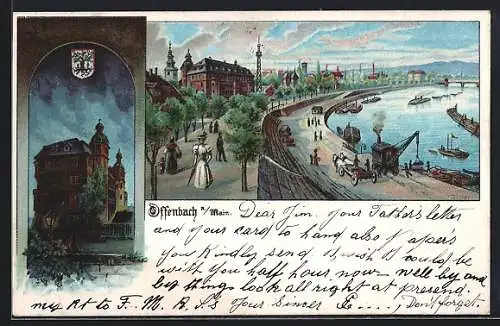 Offenbach a/Main.
Dear Jim. Your Father's letter
and your card to hand also Paper's
you Kindly send I wish I could be
with you half hour now well by and
by things look all right at present.
my Rt to F. M. B. S.S Your Sincer Don't forget.